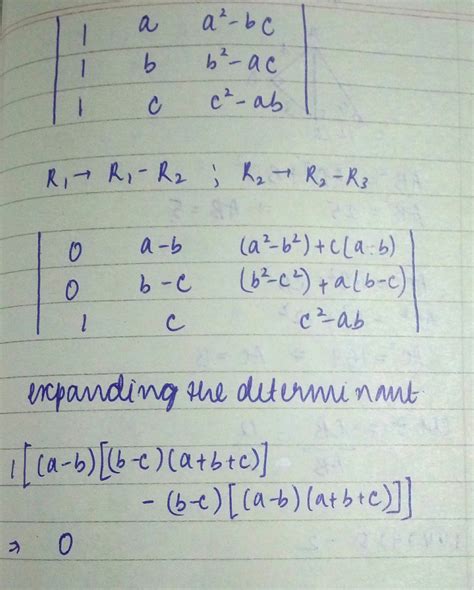 | 1 a a²-bc |
| 1 b b²-ac |
| 1 c c²-ab |
R₁→ R₁-R₂ ; R₂→ R₂-R₃
| 0 a-b (a²-b²)+c(a-b) |
| 0 b-c (b²-c²)+a(b-c) |
| 1 c c²-ab |
expanding the determinant
1[(a-b)[(b-c)(a+b+c)]
-(b-c)[(a-b)(a+b+c)]]
⇒ 0